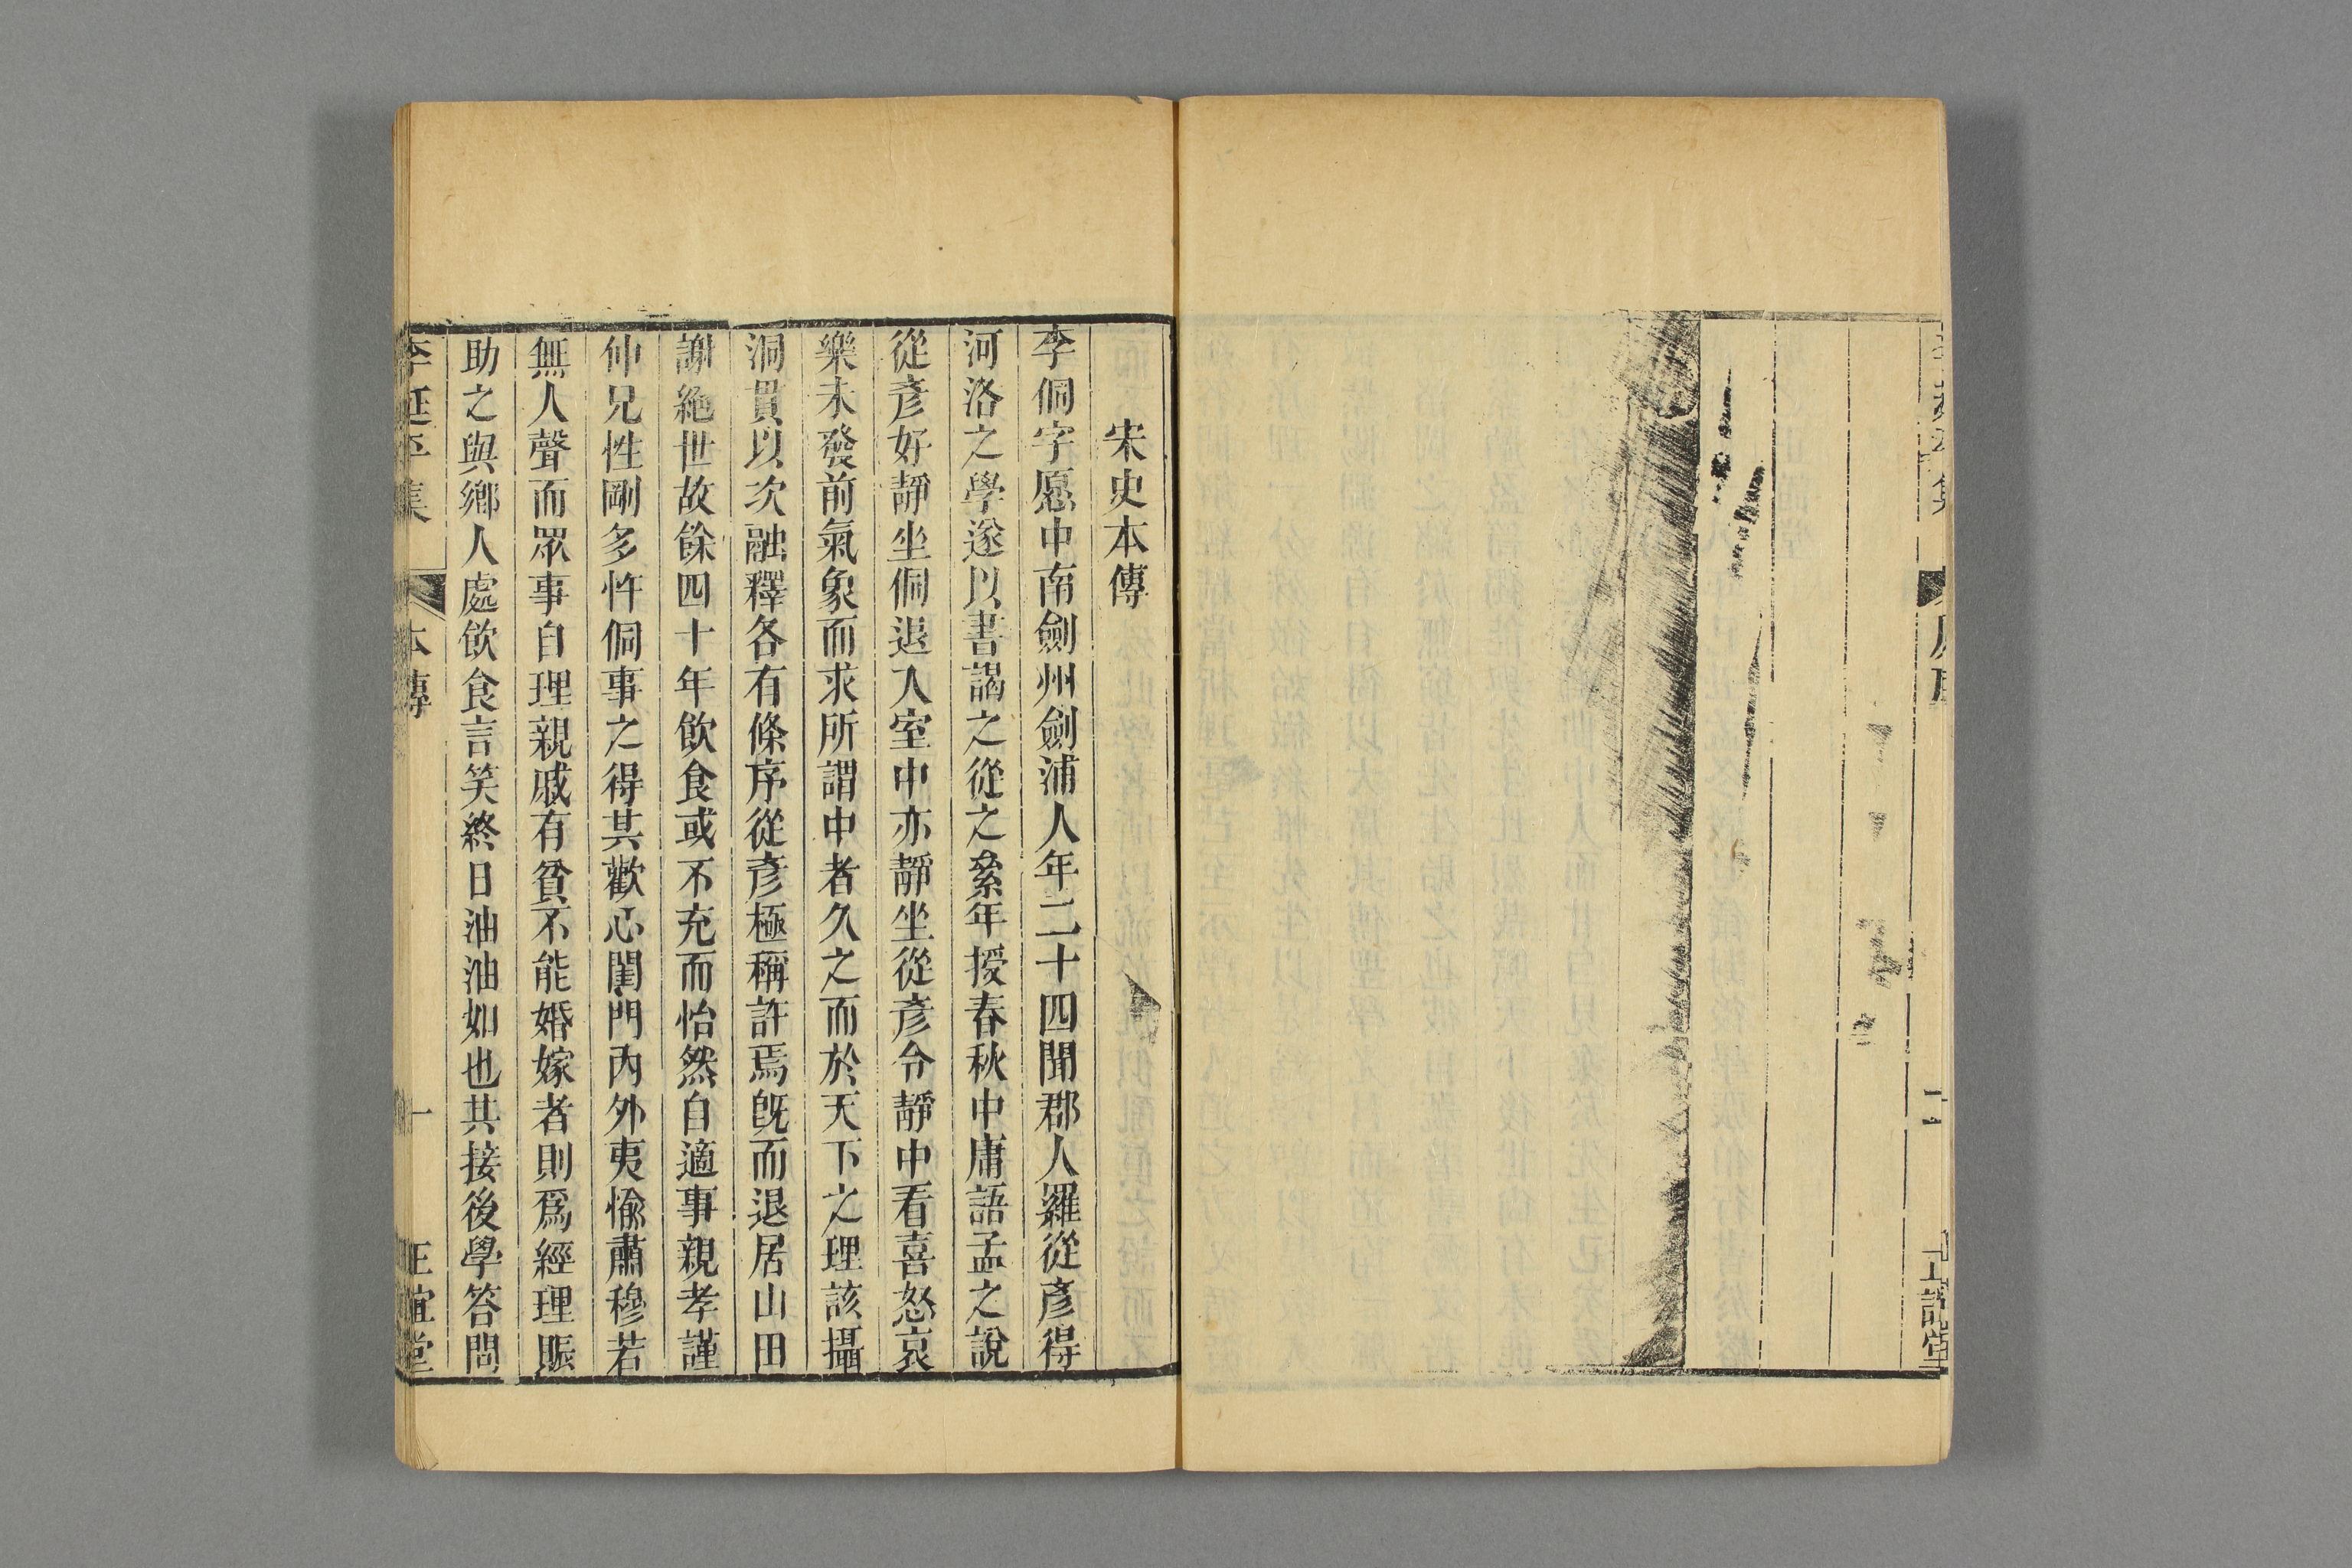 二
正誼堂
宋史本傳
李侗字愿中南劍州劍浦人年二十四聞郡人羅從彥得
河洛之學遂以書謁之從之絫年授春秋中庸語孟之說
從彥好靜坐侗退入室中亦靜坐從彥令靜中看喜怒哀
樂未發前氣象而求所謂中者久之而於天下之理該攝
洞貫以次融釋各有條序從彥極稱許焉旣而退居山田
謝絶世故餘四十年飲食或不充而怡然自適事親孝謹
仲兄性剛多忤侗事之得其歡心閨門內外夷愉肅穆若
無人聲而眾事自理親戚有貧不能婚嫁者則爲經理賑
助之與鄉人處飲食言笑終日油油如也其接後學答問
李延平集
本傳
一
正誼堂